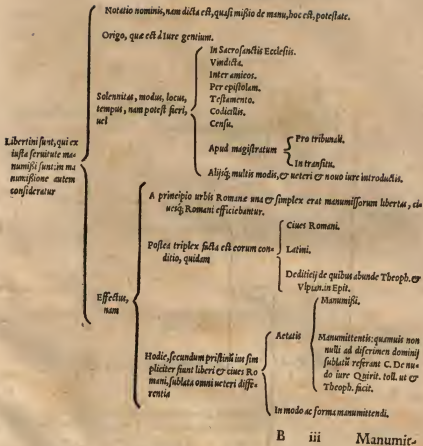 Notatio nominis, nam dicta est, quasi mißio de manu, hoc est, potestate.
Origo, quæ est à Iure gentium.
Solennitas, modus, locus,
tempus, nam potest fieri,
uel
In Sacrosanctis Ecclesijs.
Vindicta.
Inter amicos.
Per epistolam.
Testamento.
Codicillis.
Censu.
Apud magistratum
Pro tribunali.
In transitu.
Alijsq; multis modis, & ueteri & nouo iure introductis.
Libertini sunt, qui ex
iusta seruitute ma-
numißi sunt: in ma
numißione autem
consideratur
Effectus,
nam
A principio urbis Romanæ una & simplex erat manumissorum libertas, ci-
uesq; Romani efficiebantur.
Postea triplex facta est eorum con-
ditio, quidam
Ciues Romani.
Latini.
Dediticij de quibus abunde Theoph. &
Vlpian. in Epit.
Hodie, secundum pristinũ ius sim
pliciter fiunt liberi & ciues Ro
mani, sublata omni ueteri diffe-
rentia
Aetatis
Manumißi.
Manumittentis: quamuis non
nulli ad discrimen dominij
sublatũ referant C. De nu-
do iure Quirit. toll. ut &
Theoph. facit.
In modo ac forma manumittendi.
B iii Manumit-